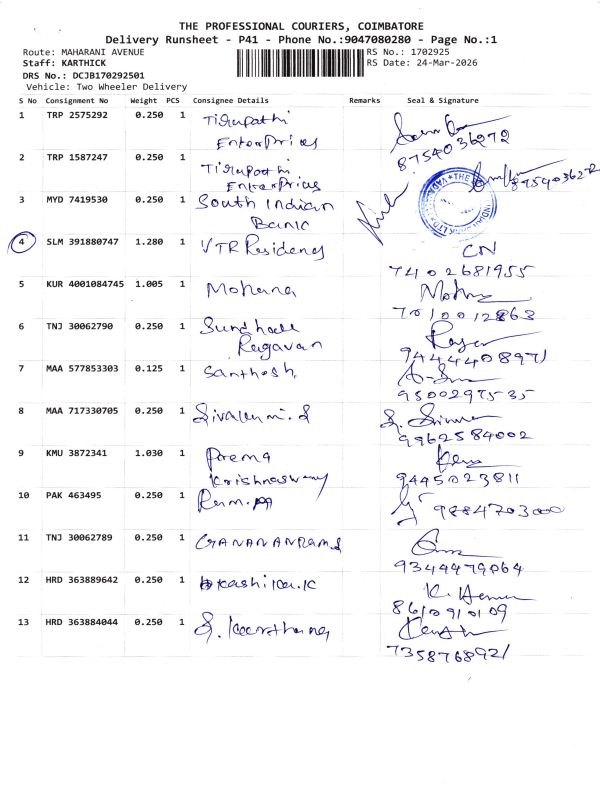 THE PROFESSIONAL COURIERS, COIMBATORE
Delivery Runsheet - P41 - Phone No.:9047080280 - Page No.:1
Route: MAHARANI AVENUE
RS No.: 1702925
Staff: KARTHICK
RS Date: 24-Mar-2026
DRS No.: DCJB170292501
Vehicle: Two Wheeler Delivery
S No Consignment No Weight PCS Consignee Details Remarks Seal & Signature
1 TRP 2575292 0.250 1 Tirupathi
Enterprises
8754036272
2 TRP 1587247 0.250 1 Tirupathi
Enterprises
3 MYD 7419530 0.250 1 South Indian
Bank
4 SLM 391880747 1.280 1 VTR Residency
CN
7402681955
5 KUR 4001084745 1.005 1 Mohana
7010012863
6 TNJ 30062790 0.250 1
Ragavan
9444408971
7 MAA 577853303 0.125 1 Santhosh
9500297535
8 MAA 717330705 0.250 1
9962584002
9 KMU 3872341 1.030 1 Prema
Krishnaswamy
9445023811
10 PAK 463495 0.250 1
9884703000
11 TNJ 30062789 0.250 1
9344479064
12 HRD 363889642 0.250 1
8610910109
13 HRD 363884044 0.250 1
7358768921